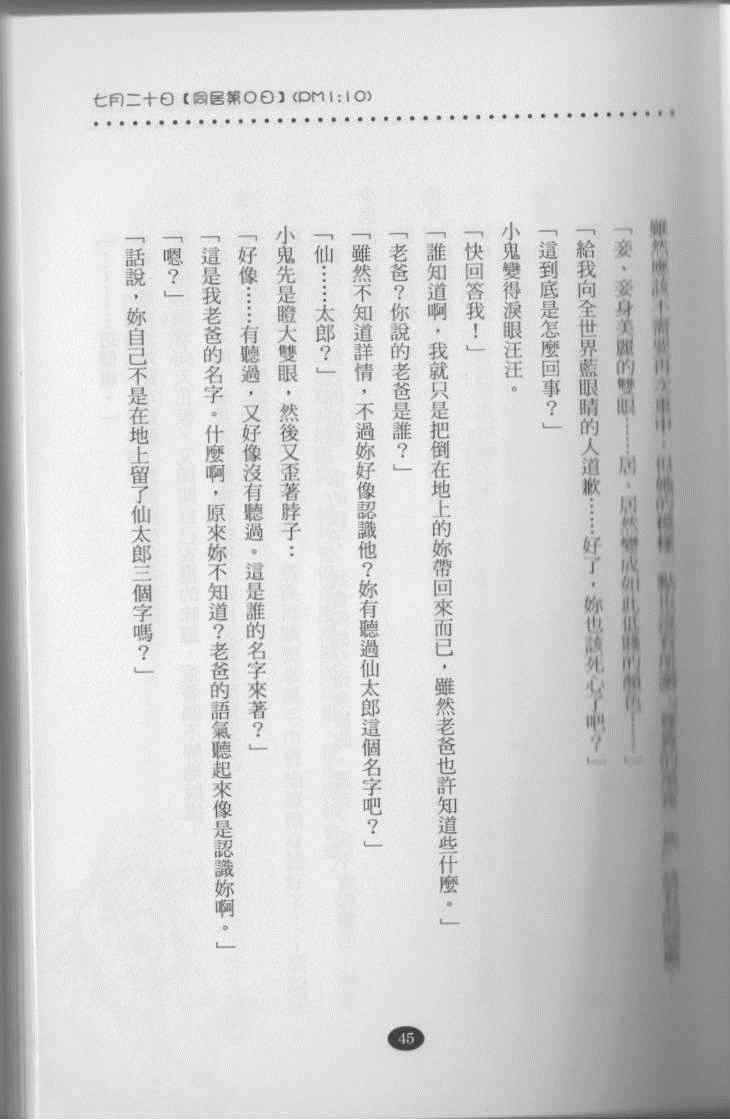 七月二十日【同居第０日】(PM1:10)
「妾、妾身美麗的雙眼……居、居然變成如此低賤的顏色……」
「給我向全世界藍眼睛的人道歉……好了，妳也該死心了吧？」
「這到底是怎麼回事？」
小鬼變得淚眼汪汪。
「快回答我！」
「誰知道啊，我就只是把倒在地上的妳帶回來而已，雖然老爸也許知道些什麼。」
「老爸？你說的老爸是誰？」
「雖然不知道詳情，不過妳好像認識他？妳有聽過仙太郎這個名字吧？」
「仙……太郎？」
小鬼先是瞪大雙眼，然後又歪著脖子：
「好像……有聽過，又好像沒有聽過。這是誰的名字來著？」
「這是我老爸的名字。什麼啊，原來妳不知道？老爸的語氣聽起來像是認識妳啊。」
「嗯？」
「話說，妳自己不是在地上留了仙太郎三個字嗎？」
45